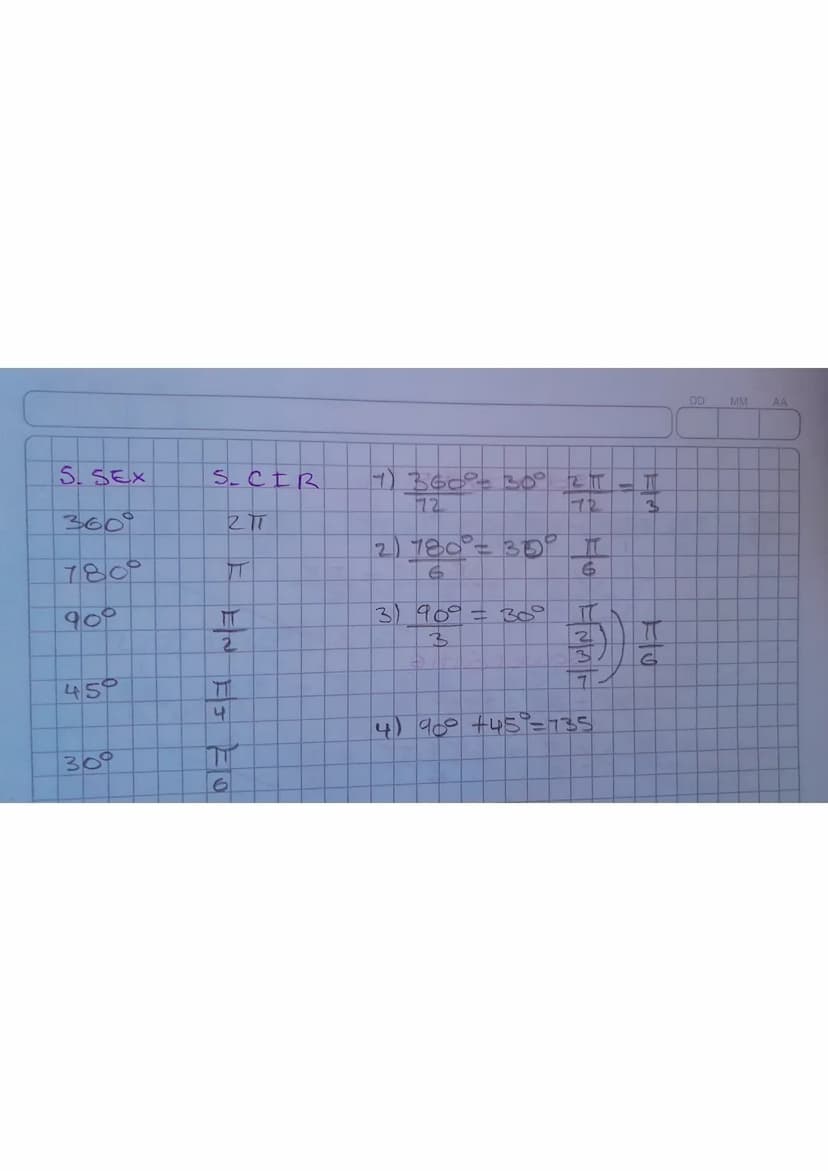 DD MM AA
S. SEX S. CIR
360° 2π
180° π
90° π/2
45° π/4
30° π/6
1) 360°/12 = 30° 2π/12 = π/3
2) 180°/6 = 30° π/6
3) 90°/3 = 30° π/2/3/1 π/6
4) 90° + 45° = 135